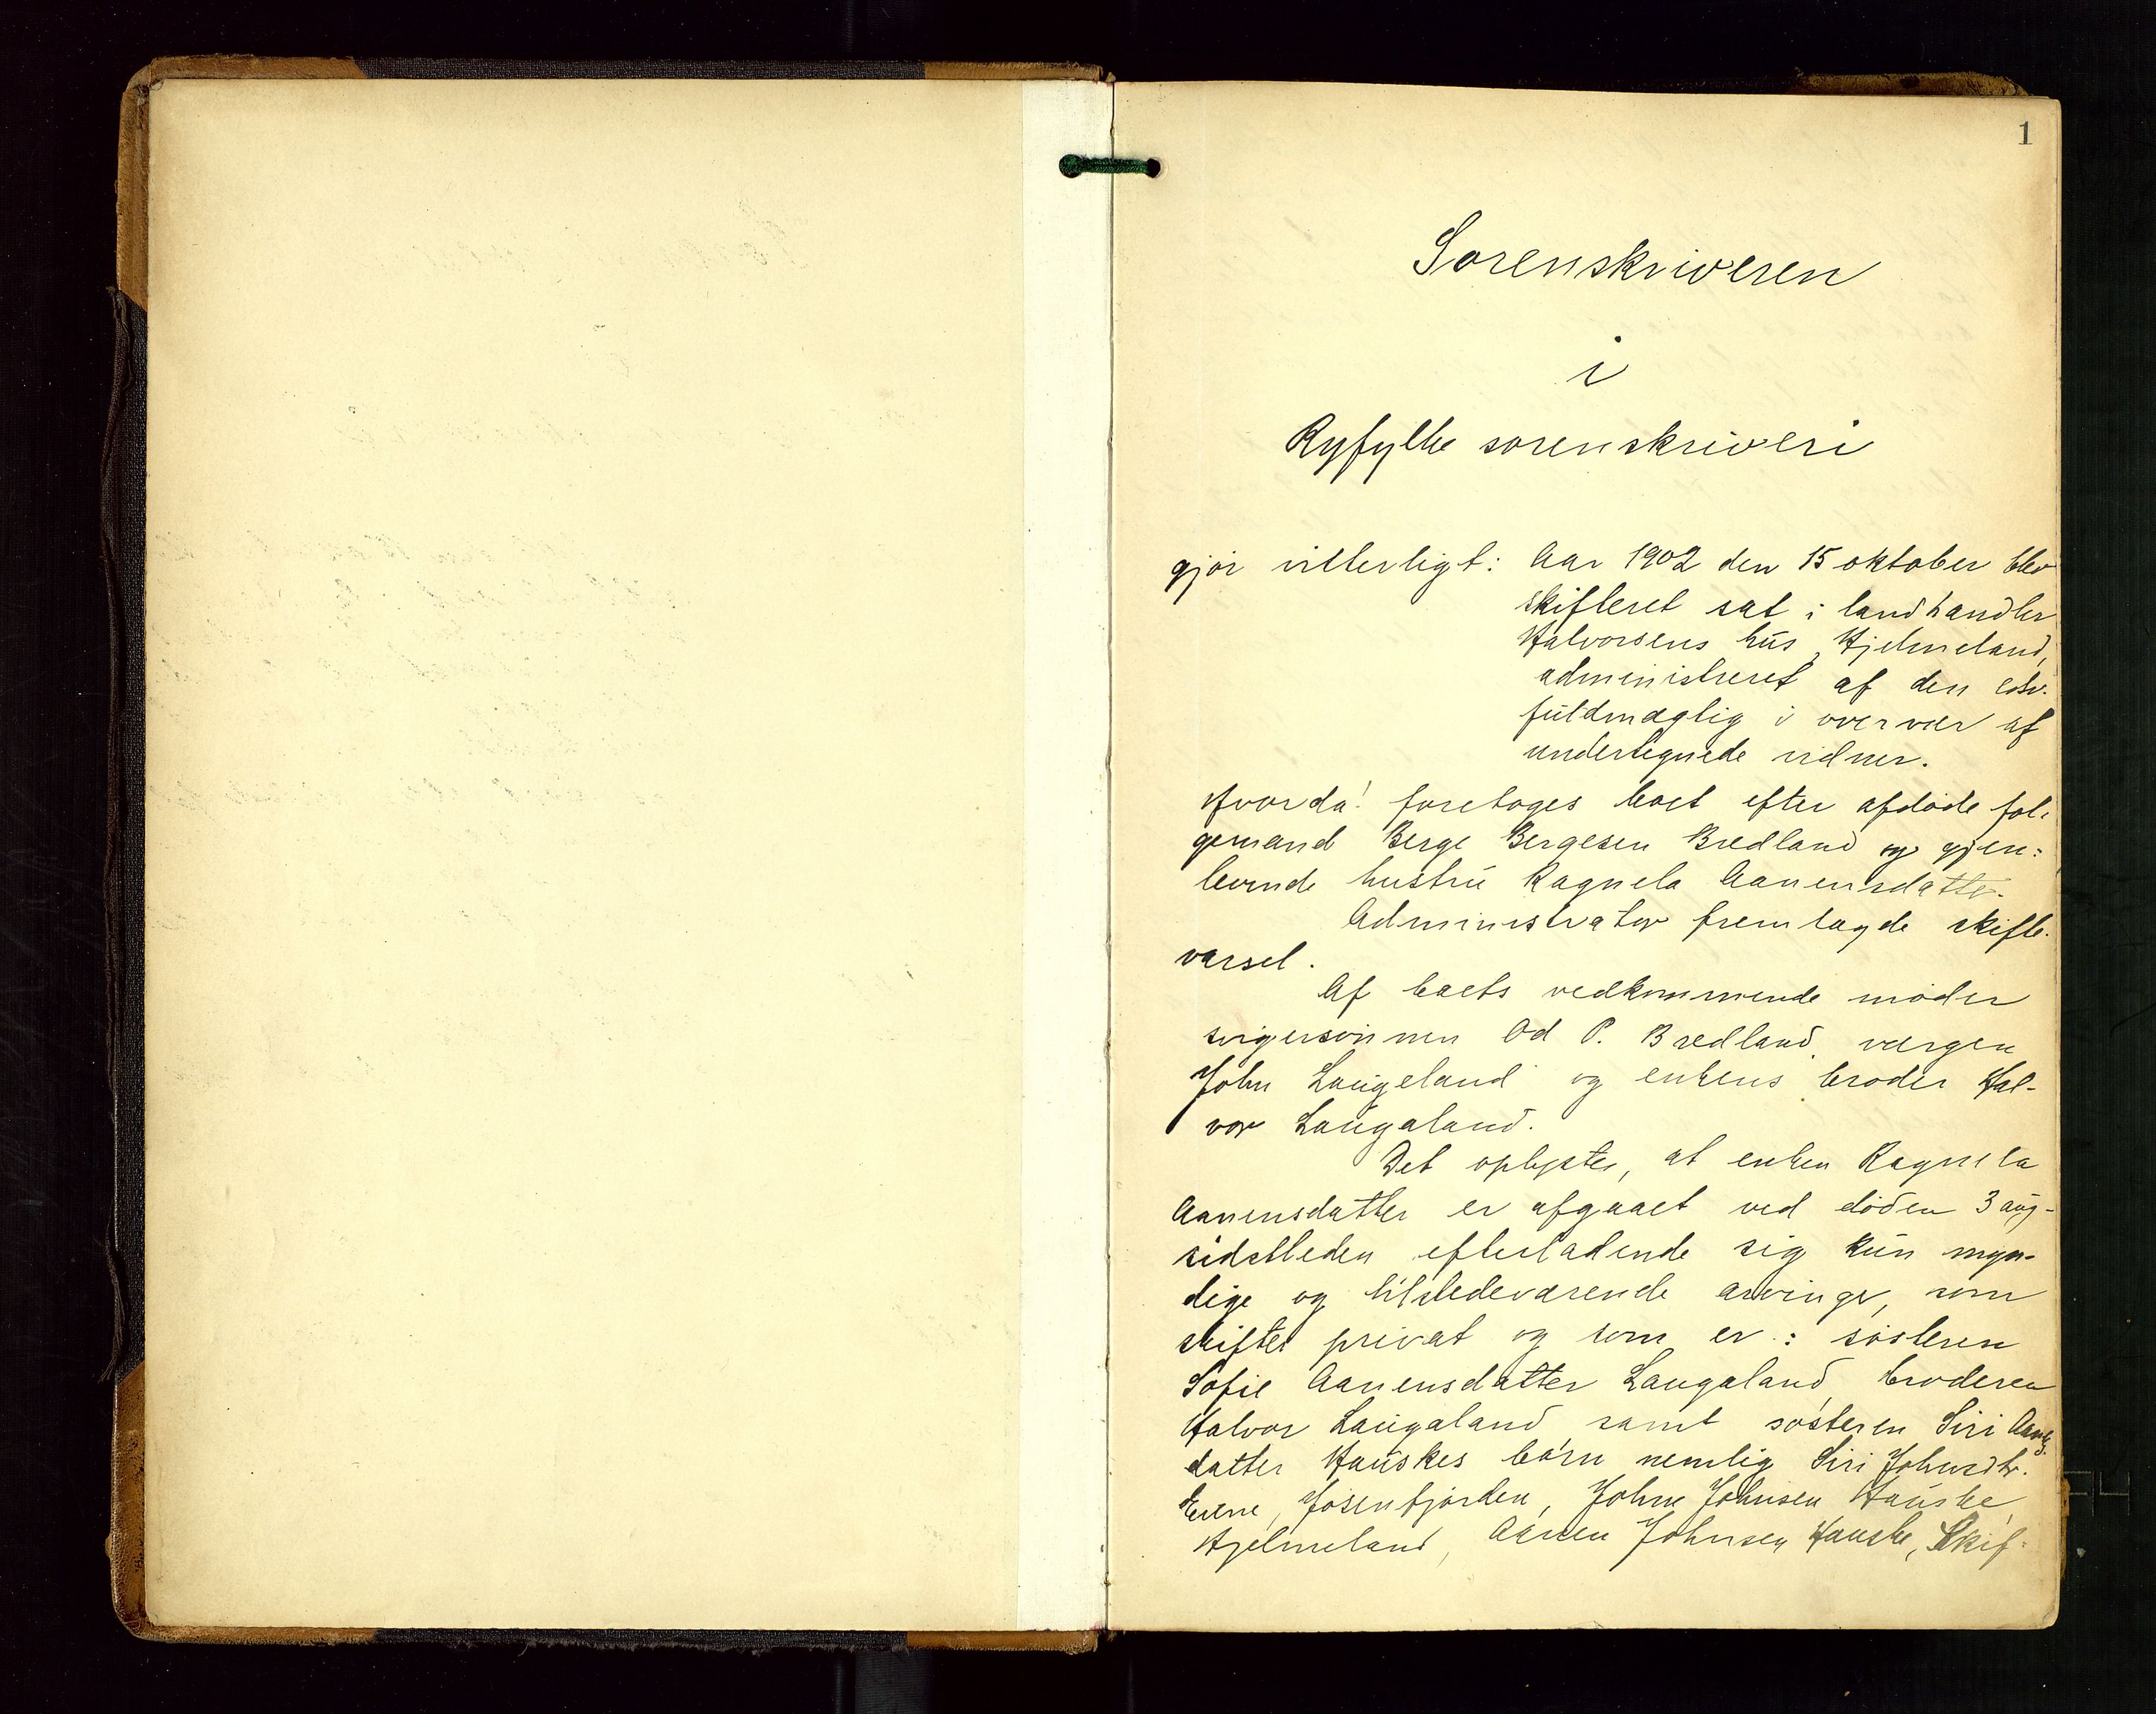 1
Sorenskriveren
i
Ryfylke sorenskriveri
gjör vitterligt: Aar 1902 den 15 oktober blev
skifteret sat i landhandler
Halvorsens hus, Hjelmeland,
administreret af den edsv.
fuldmægtig i overvær af
undertegnede vidner.
Hvorda: foretoges boet efter afdöde fol-
gemand Berge Bergesen Bredland og gjen-
levende hustru Ragnela Aanensdatter.
Administrator fremlagde skifte-
varsel.
Af boets vedkommende möder
svigersönnen Od P. Bredland, værgen
John Laugeland og enkens broder Hal-
vor Laugaland.
Det oplystes, at enken Ragnela
Aanensdatter er afgaaet ved döden 3 aug-
sidstleden efterladende sig kun myn-
dige og tilstedeværende arvinge, som
skifter privat og som er: sösteren
Sofie Aanensdatter Laugaland, broderen
Halvor Laugaland samt sösteren Siri Aans
datter Hauskes börn nemlig Siri Johnsdtr.
Jösenfjorden, John Johnsen Hauske,
Hjelmeland, Aanen Johnsen Hauske, Skif-